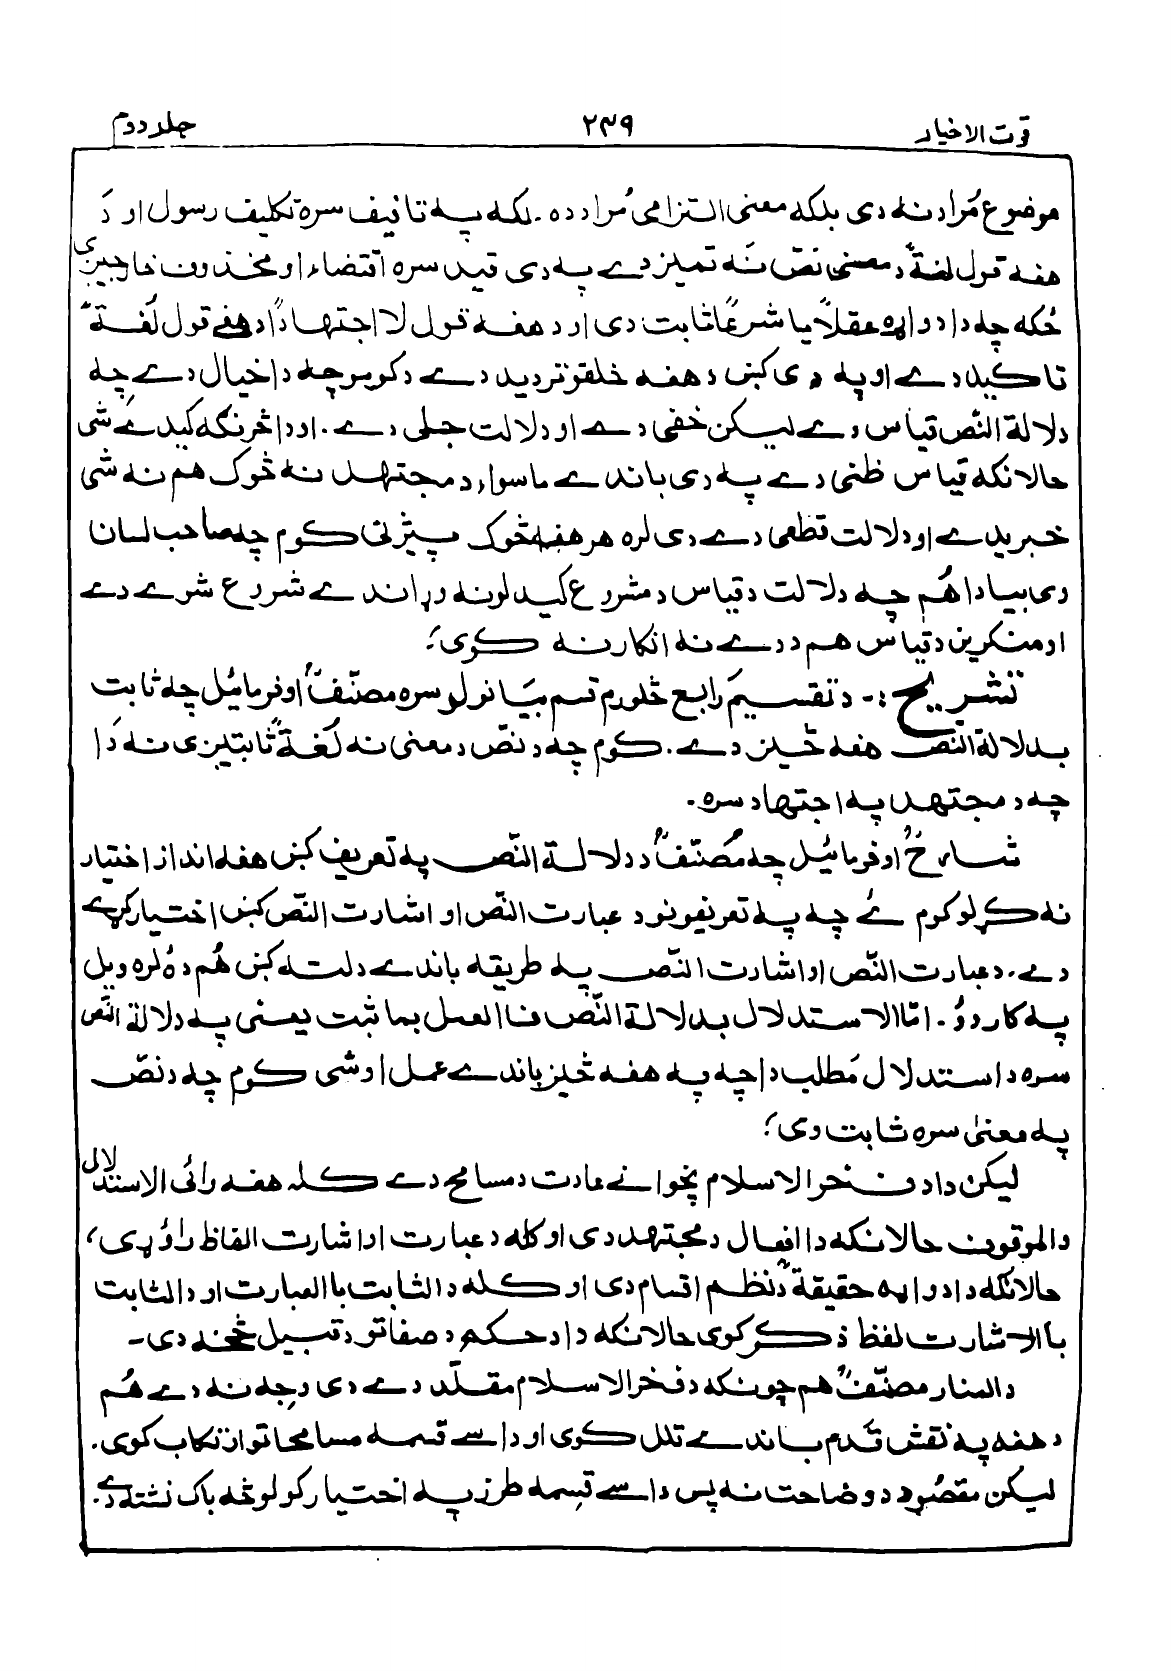 قوت الاخیار ۲۳۹ جلد دوم
موضوع مُراد نه دی بلکه معنی التزامی مُراد ده۔ لکه په تافیف سره تکلیف رسول او دَ
هغه قول لغةً د معنی نصّ نه تمیز دے په دی قید سره اقتضاء او محذوف خارجیږی
ځکه چه دا دواړه عقلاً یا شرعًا ثابت دی او د هغه قول لا اجتهادًا د هغے قول لُغةً
تاکید دے او په دی کښ د هغه خلقو تردید دے د کومو چه دا خیال دے چه
دلالة النّص قیاس دے لیکن خفی دے او دلالت جلی دے۔ او دا څرنګه کیدے شی
حالانکه قیاس ظنی دے په دی باندے ماسواء د مجتهد نه څوک هم نه شی
خبریدے او دلالت قطعی دے دی لره هر هغه څوک پیژنی کوم چه صاحب لسان
وی بیا دا هُم چه دلالت د قیاس د مشروع کیدلو نه وړاندے شروع شوے دے
او منکرین د قیاس هم د دے نه انکار نه کوی؛
تشریح :- د تقسیم رابع څلورم قسم بیانولو سره مصنّفؒ اوفرمائیل چه ثابت
بدلالة النّص هغه څیز دے۔ کوم چه د نصّ د معنی نه لُغةً ثابتیږی نه دا
چه د مجتهد په اجتهاد سره۔
شارحؒ اوفرمائیل چه مُصنّفؒ د دلالة النّص په تعریف کښ هغه انداز اختیار
نه کړلو کوم ئے چه په تعریفونو د عبارت النّص او اشارت النّص کښ اختیار کړے
دے۔ د عبارت النّص او اشارت النّص په طریقه باندے دلته کښ هُم دهُ لره ویل
په کار وُو۔ امّا الاستدلال بدلالة النّص فالعمل بما ثبت یعنی په دلالة النّص
سره د استدلال مَطلب دا چه په هغه څیز باندے عمل اوشی کوم چه د نصّ
په معنیٰ سره ثابت وی؛
لیکن دا د فخر الاسلام پخوانے عادت د مسامح دے کله هغه رائی الاستدلالی
د الموقوف حالانکه دا افعال د مجتهد دی او کله د عبارت او اشارت الفاظ راوُړی،
حالانکه دا دواړه حقیقةً د نظم اقسام دی او کله د الثابت باالعبارت او د الثابت
باالاشارت لفظ ذکر کوی حالانکه دا د حکم د صفاتو د قبیل څخه دی۔
د المنار مصنّفؒ هم چونکه د فخر الاسلام مقلّد دے دی وجه نه دے هُم
د هغه په نقش قَدم باندے تلل کوی او داسے قسمه مسامحاتو ارتکاب کوی۔
لیکن مقصُود د وضاحت نه پس داسے قسمه طرز په اختیار کولو څه باک نشته دے۔